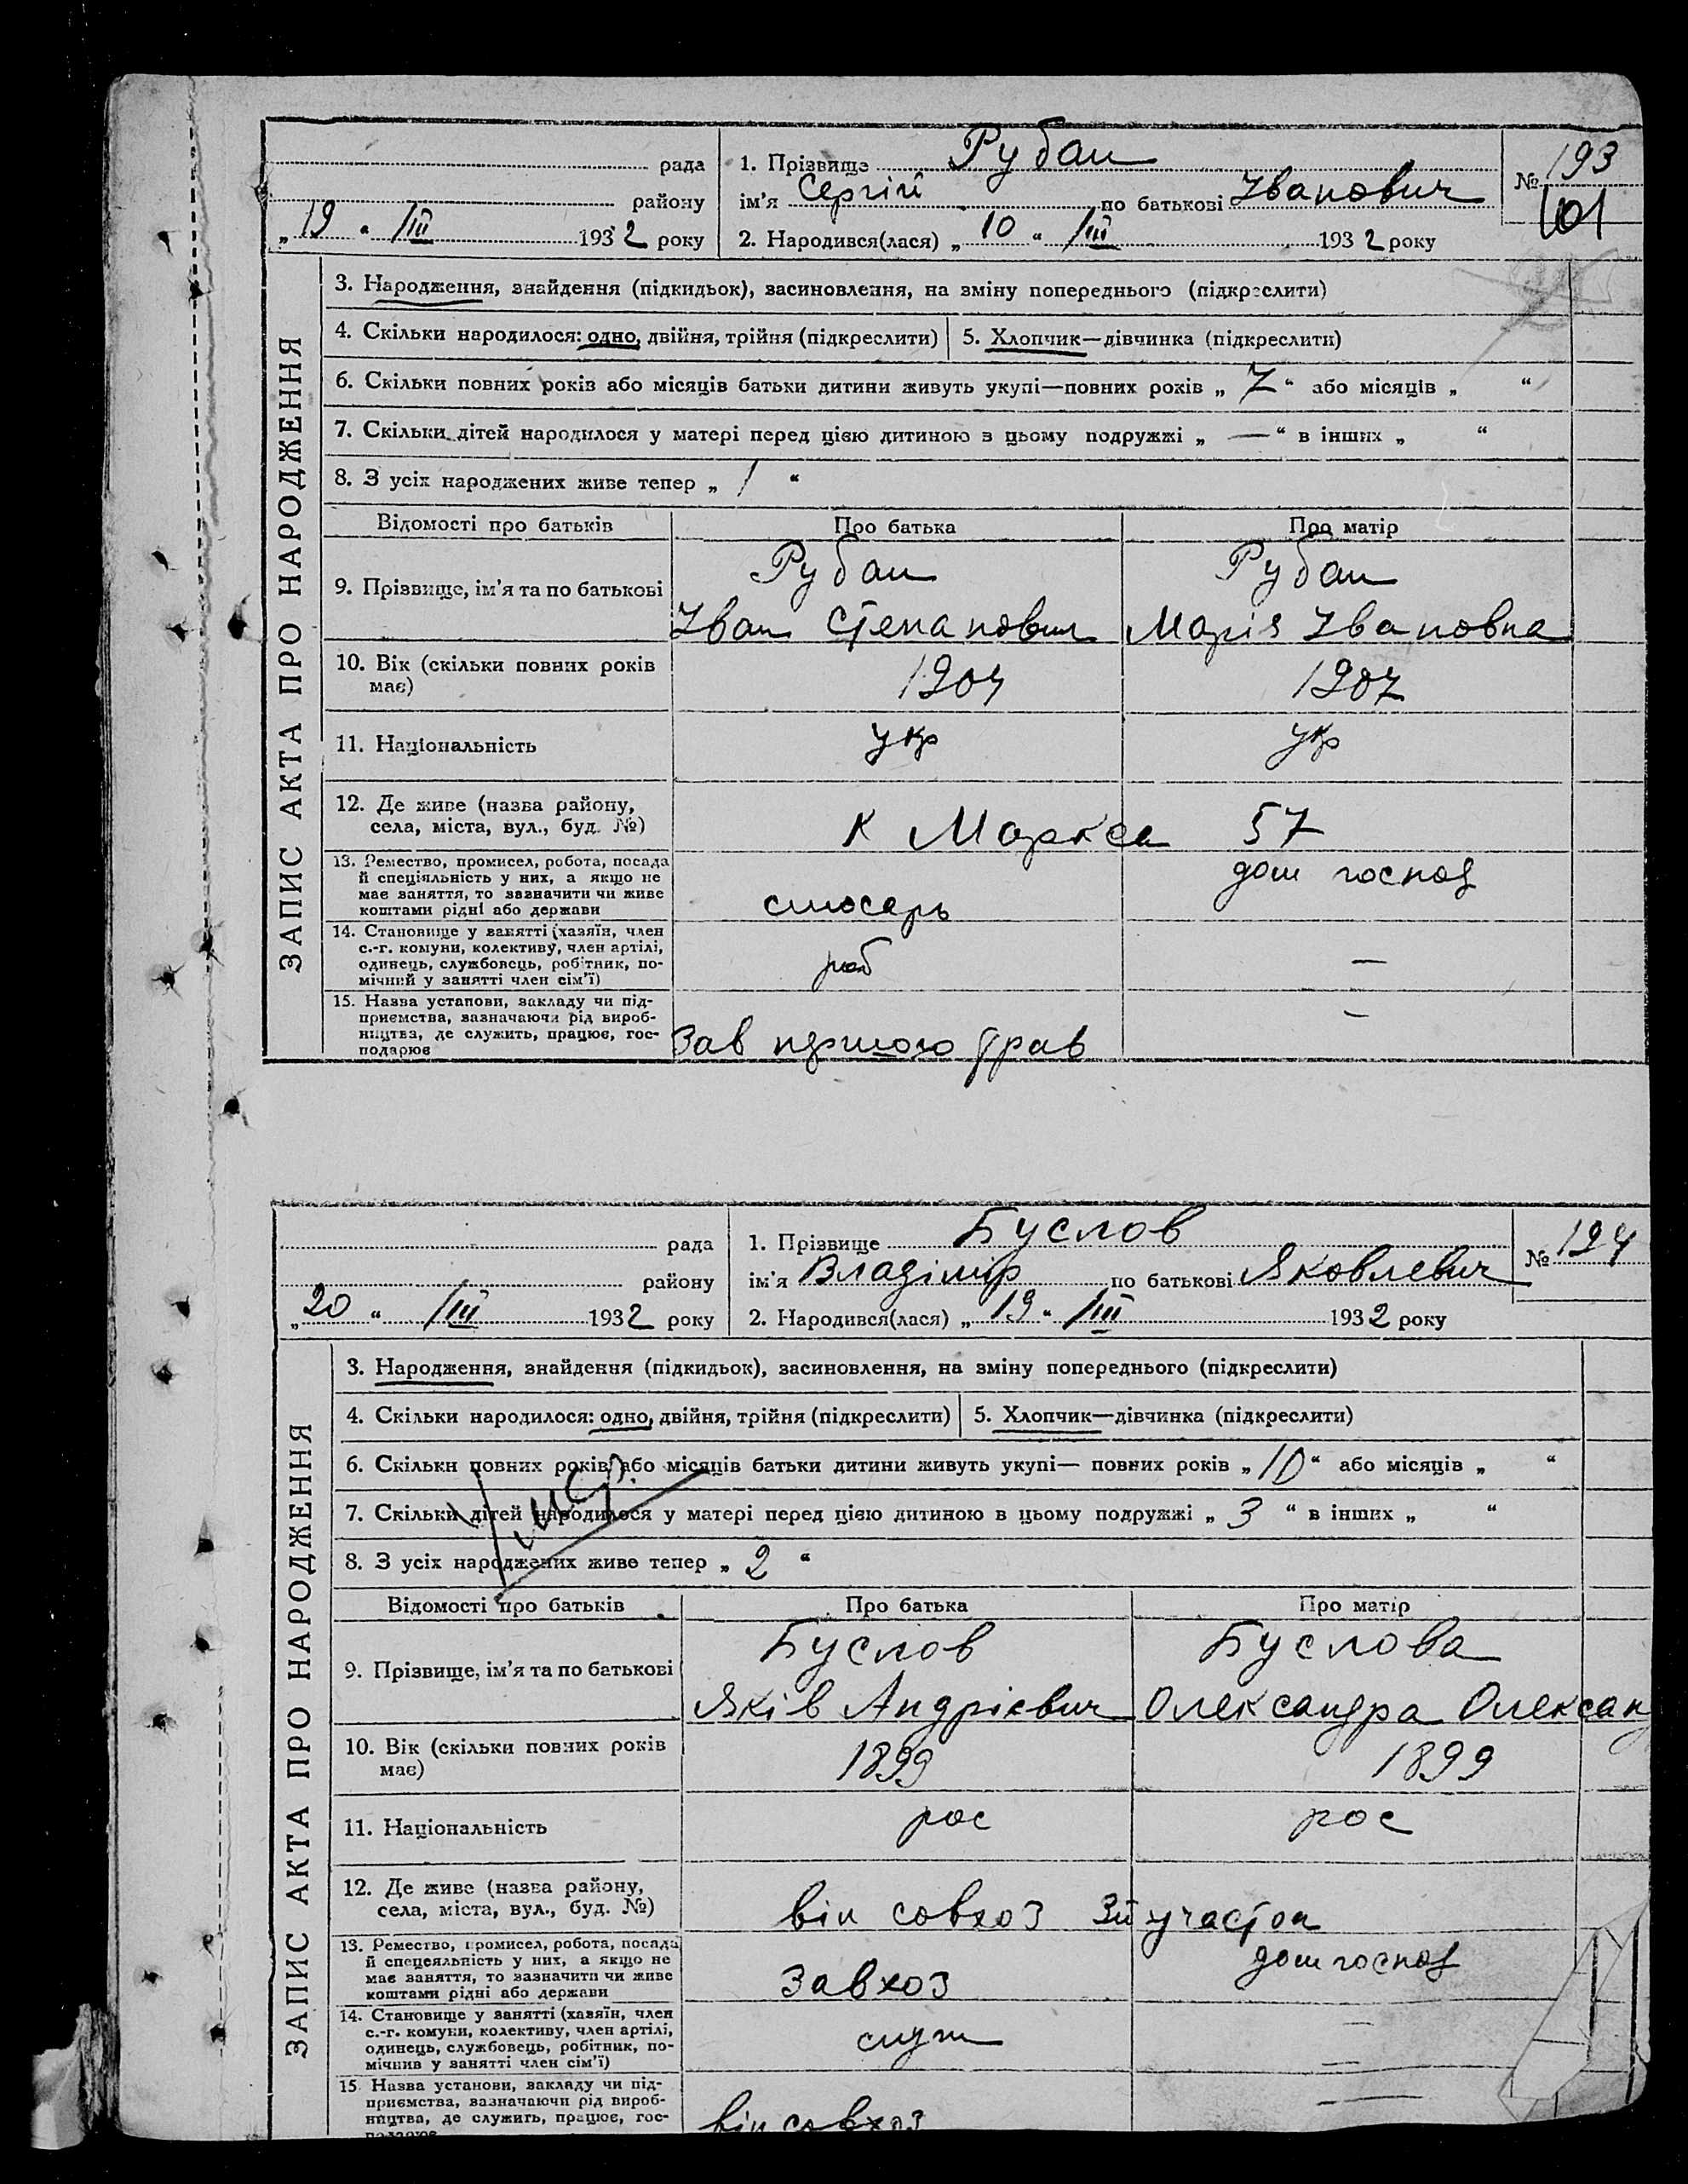 рада
1. Прізвище Рубан
№ 193
району
ім'я Сергій по батькові Іванович
101
„19“ /III 1932 року
2. Народився(лася) „10“ /III 1932 року
ЗАПИС АКТА ПРО НАРОДЖЕННЯ
3. Народження, знайдення (підкидьок), засиновлення, на зміну попереднього (підкреслити)
4. Скільки народилося: одно, двійня, трійня (підкреслити)
5. Хлопчик—дівчинка (підкреслити)
6. Скільки повних років або місяців батьки дитини живуть укупі—повних років „7“ або місяців „ “
7. Скільки дітей народилося у матері перед цією дитиною в цьому подружжі „ — “ в інших „ “
8. З усіх народжених живе тепер „1“
Відомості про батьків Про батька Про матір
9. Прізвище, ім'я та по батькові
Рубан Рубан
Іван Степанович Марія Івановна
10. Вік (скільки повних років
має)
1904 1907
11. Національність укр укр
12. Де живе (назва району,
села, міста, вул., буд. №)
К Маркса 57
13. Ремество, промисел, робота, посада
й спеціяльність у них, а якщо не
має заняття, то зазначити чи живе
коштами рідні або держави
слюсарь дом господ
14. Становище у занятті (хазяїн, член
с.-г. комуни, колективу, член артілі,
одинець, службовець, робітник, по-
мічний у занятті член сім'ї)
роб —
15. Назва установи, закладу чи під-
приємства, зазначаючи рід вироб-
ництва, де служить, працює, гос-
подарює
Зав першого трав —
рада
1. Прізвище Буслов
№ 194
району
ім'я Владімір по батькові Яковлевич
„20“ /III 1932 року
2. Народився(лася) „19“ /III 1932 року
ЗАПИС АКТА ПРО НАРОДЖЕННЯ
3. Народження, знайдення (підкидьок), засиновлення, на зміну попереднього (підкреслити)
4. Скільки народилося: одно, двійня, трійня (підкреслити)
5. Хлопчик—дівчинка (підкреслити)
6. Скільки повних років або місяців батьки дитини живуть укупі— повних років „10“ або місяців „ “
7. Скільки дітей народилося у матері перед цією дитиною в цьому подружжі „3“ в інших „ “
8. З усіх народжених живе тепер „2“
Відомості про батьків Про батька Про матір
9. Прізвище, ім'я та по батькові
Буслов Буслова
Яків Андрієвич Олександра Олександ
10. Вік (скільки повних років
має)
1899 1899
11. Національність рос рос
12. Де живе (назва району,
села, міста, вул., буд. №)
він совхоз 3й участок
13. Ремество, промисел, робота, посада
й спецеяльність у них, а якщо не
має заняття, то зазначити чи живе
коштами рідні або держави
Завхоз дом господ
14. Становище у занятті (хазяїн, член
с.-г. комуни, колективу, член артілі,
одинець, службовець, робітник, по-
мічнив у занятті член сім'ї)
служ —
15. Назва установи, закладу чи під-
приємства, зазначаючи рід вироб-
ництва, де служить, працює, гос-
подарює
він совхоз —